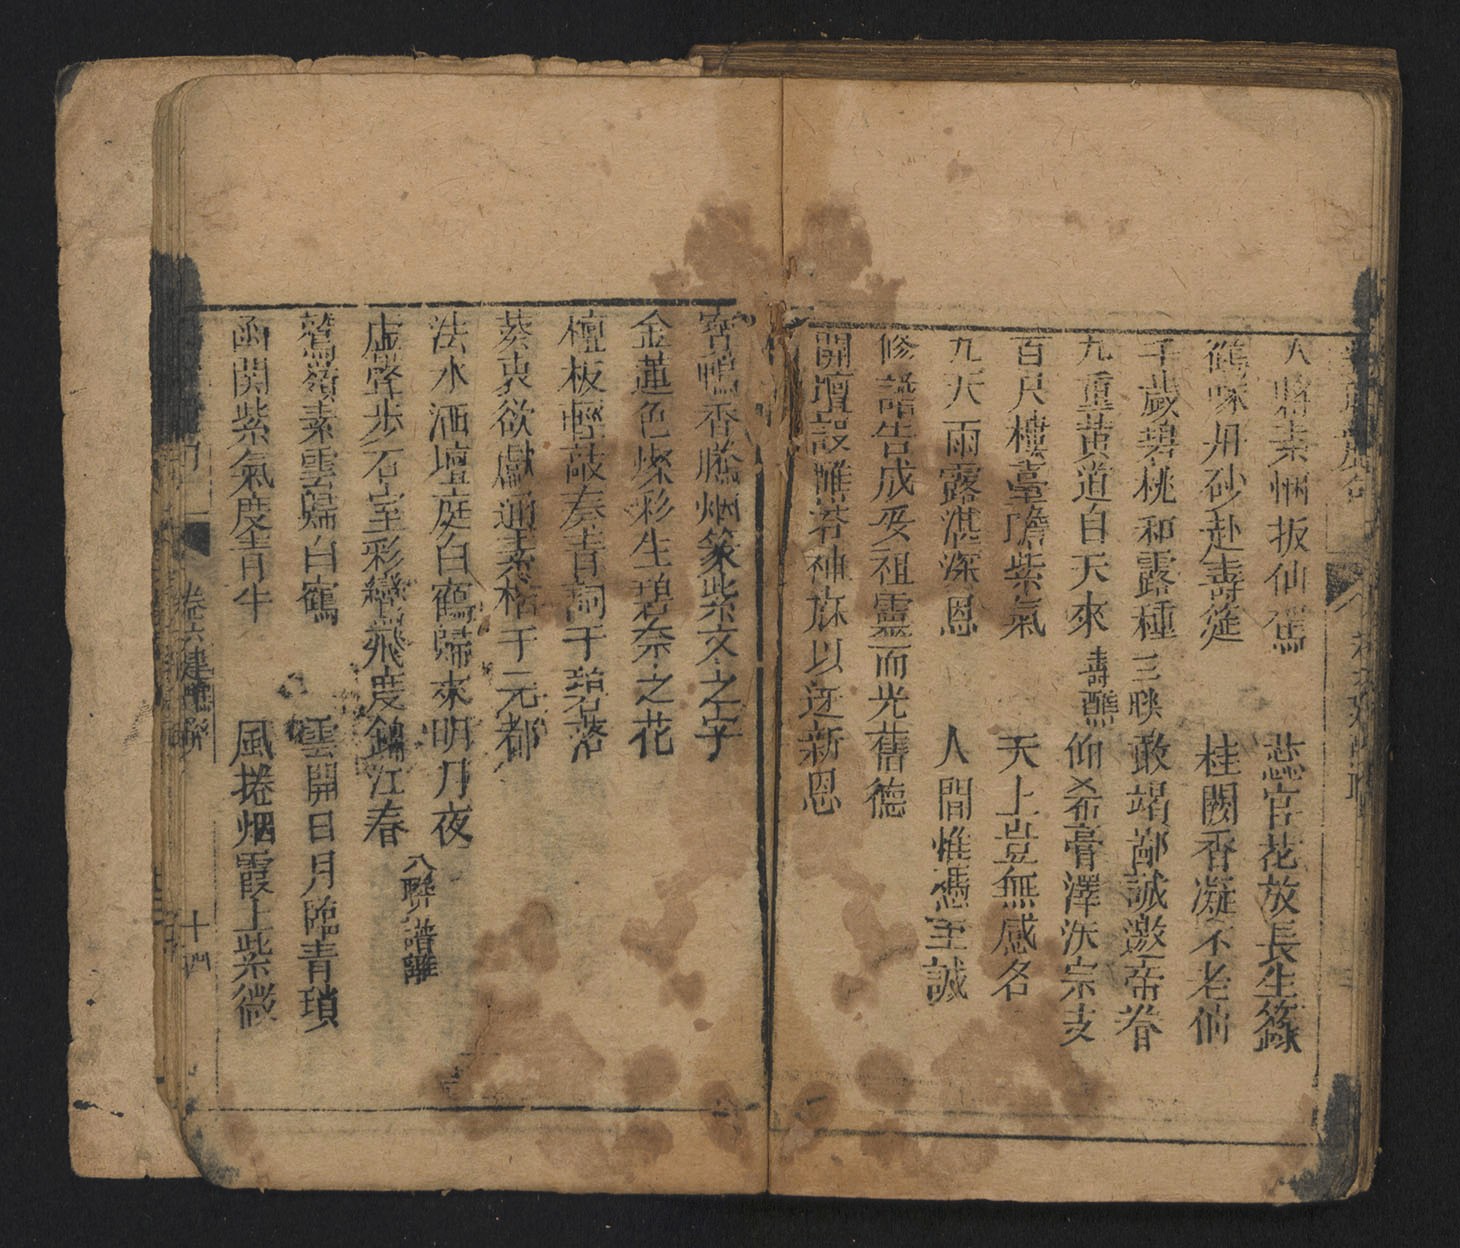 人將素悃扳仙駕 蕊宮花放長生籙
鶴啄丹砂赴壽筵 桂闕香凝不老仙
千歲碧桃和露種 三映 敢竭鄙誠邀帝眷
九重黃道自天來 壽醮 仰希膏澤沃宗支
百尺樓臺瞻紫氣 天上豈無感名
九天雨露湛深恩 人間惟憑至誠
修誥告成妥祖靈而光舊德
開壇設醮荅神庥以迓新恩
寳鴨香騰烟篆紫文之字
金蓮色燦彩生碧奈之花
檀板輕敲奏青詞于碧落
葵衷欲獻通素悃于元都
法水洒壇庭白鶴歸來明月夜
虛聲步石室彩鸞飛度錦江春 八聯譜醮
鷲嶺素雲歸白鶴 雲開日月臨青瑣
函關紫氣度青牛 風捲烟霞上紫微
卷六建醮聯
十四